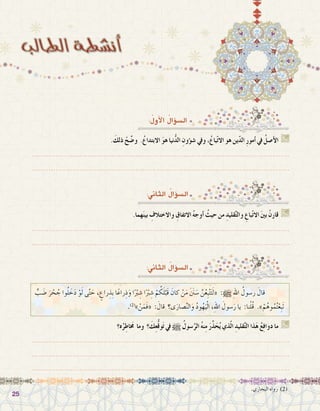 أنشطة الطالب
السؤال الأول
الأصل في أمور الدين هو الاتباع، وفي شؤون الدنيا هو الابتداع. وضح ذلك.
السؤال الثاني
قارن بين الاتباع والتقليد من حيث أوجه الاتفاق والاختلاف بينهما.
السؤال الثاني
قال رسول الله ﷺ: «لتتبعن سنن من كان قبلكم شبرا شبرا وذراعا بذراع، حتى لو دخلوا جحر ضب
تبعتموهم». قلنا: يا رسول الله، اليهود والنصارى؟ قال: «فمن»(2).
ما دوافع هذا التقليد الذي يحذر منه الرسول ﷺ في توقعك؟ وما مخاطره؟
(2) رواه البخاري.
25